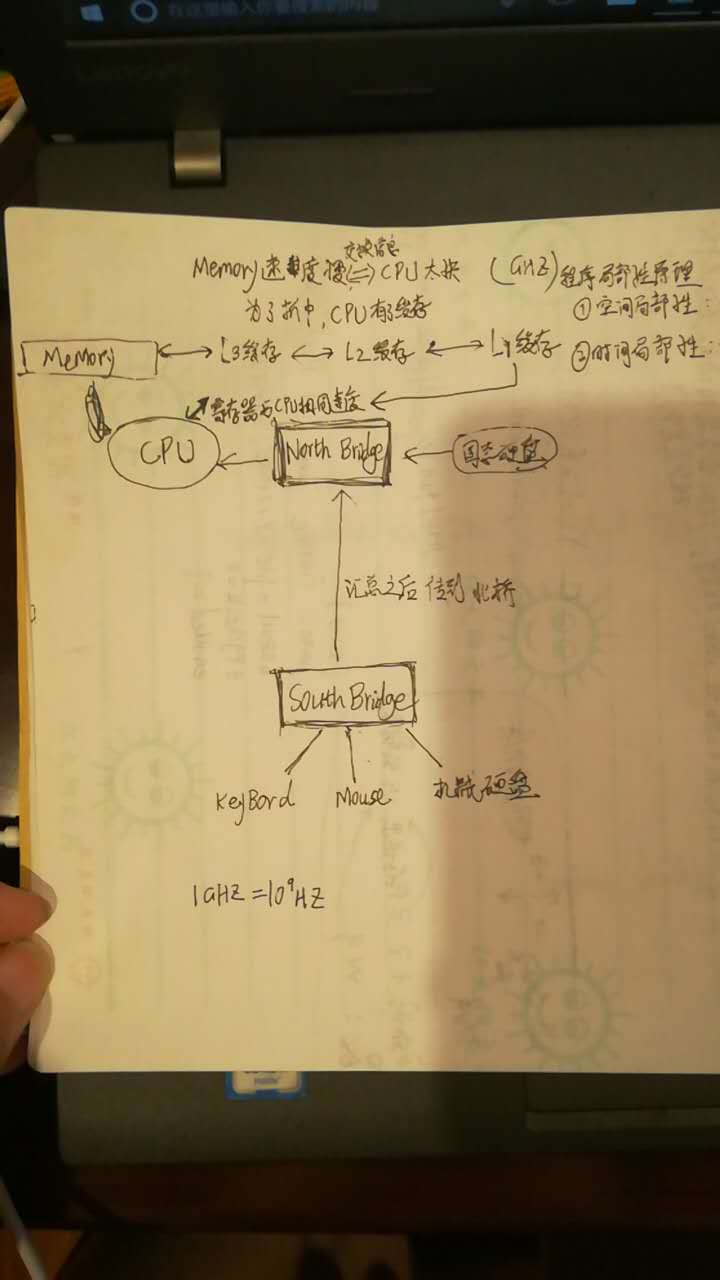 在这里输入你要搜索的内容
Lenovo
交换信息
Memory速度慢(=)CPU太快 (GHZ)程序局部性原理
为了折中,CPU有了缓存 ①空间局部性:
Memory L3缓存 L2缓存 L1缓存 ②时间局部性:
寄存器与CPU相同速度
CPU North Bridge 固态硬盘
汇总之后 传到 北桥
South Bridge
KeyBord Mouse 机械硬盘
1GHZ=10⁹HZ